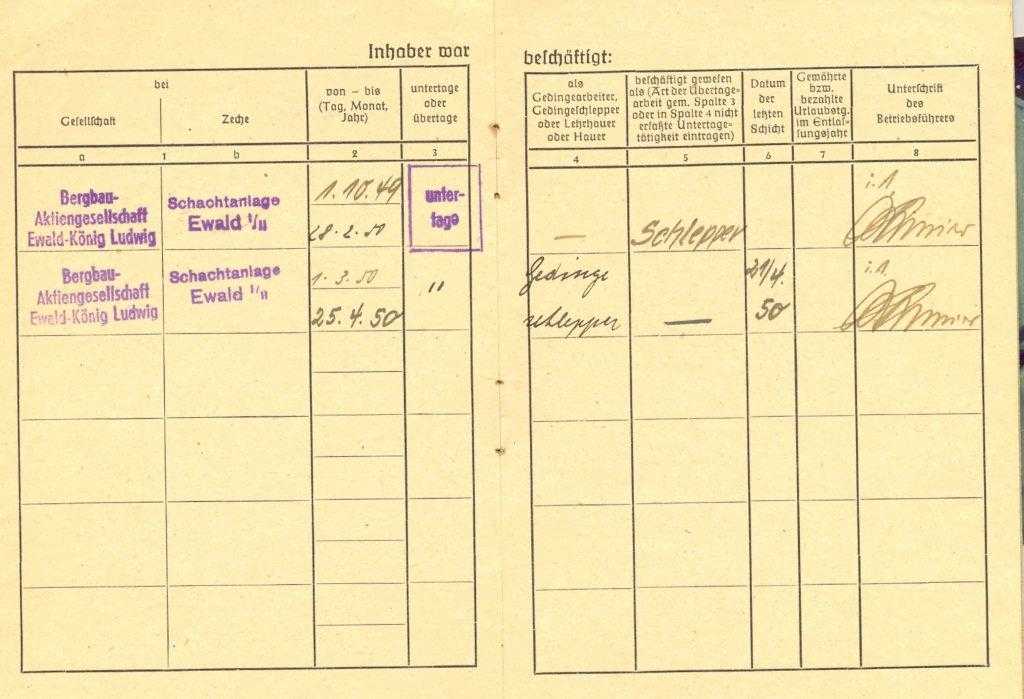 Inhaber war beschäftigt:
bei
Gesellschaft
Zeche
von – bis
(Tag, Monat,
Jahr)
untertage
oder
übertage
als
Gedingearbeiter,
Gedingeschlepper
oder Lehrhauer
oder Hauer
beschäftigt gewesen
als (Art der Übertage-
arbeit gem. Spalte 3
oder in Spalte 4 nicht
erfaßte Untertage-
tätigkeit eintragen)
Datum
der
letzten
Schicht
Gewährte
bzw.
bezahlte
Urlaubstg.
im Entlas-
sungsjahr
Unterschrift
des
Betriebsführers
a 1 b 2 3 4 5 6 7 8
Bergbau-
Aktiengesellschaft
Ewald-König Ludwig
Schachtanlage
Ewald I/II
1.10.49
28.2.50
unter-
tage
—
Schlepper
Bergbau-
Aktiengesellschaft
Ewald-König Ludwig
Schachtanlage
Ewald I/II
1.3.50
25.4.50
"
Gedinge
schlepper
—
21/4.
50